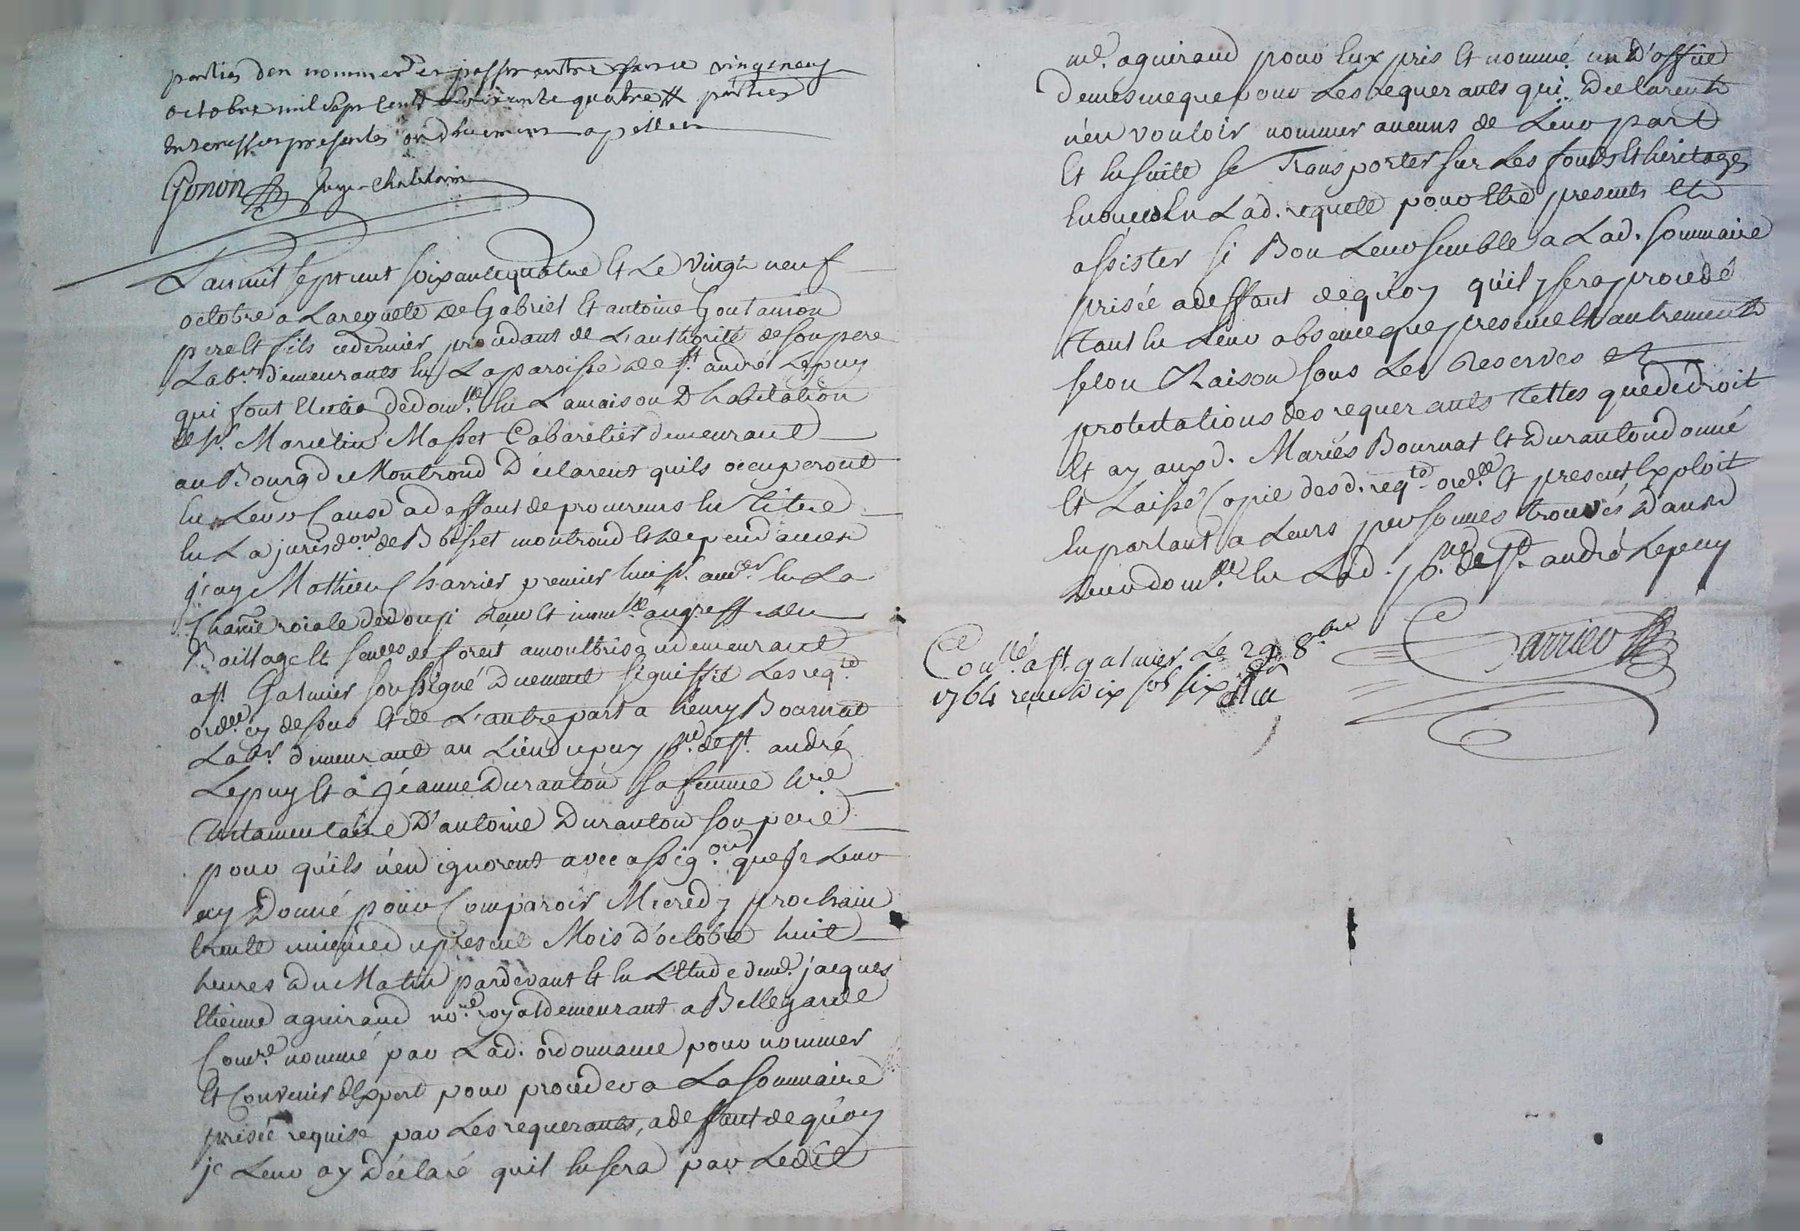 parties d'en nommer et passer outre fait ce vingt neuf
octobre mil sept cent soixante quatre parties
presentes ou duement apellées
Gonon juge chatelain
L'an mil sept cent soixante quatre et Le vingt neuf
octobre a La requete de Gabriel Et antoine Goutanion
pere Et fils ce dernier procedant de L'authorité de son pere
Labrs demeurants en La paroisse de st. andré Lepuy
qui font Election de domlle en La maison D habitation
de sr. Marcelin Masset Cabaretier demeurant
au Bourg de Montrond Déclarent quils occuperont
en Leur Cause a deffaut de procureurs en titre
en La jurisdon de Boisset montrond et dependances
j'ay Mathieu Charrier premier huissr. en La
roiale de au greffe du
Baillage Et senées de forest a montbrison demeurant
a st Galmier soussigné Duement signiffié Les reqte
ordce cy dessus et de L'autre part a henry Bournat
Labr. demeurant au Lieu du puy psse de st. andré
Lepuy Et a jéanne Duranton sa femme hre
testamentaire D'antoine Duranton son pere
pour quils n'en ignorent avec assigon que je Leur
ay Donné pour Comparoir Mecredy prochain
trente unieme du present Mois D'octobre huit
heures du Matin pardevant Et en L'Etude de me. jacques
Etienne aguiraud nore royal demeurant a Bellegarde
Comre nommé par Lad. ordonnance pour nommer
Et Convenir d'Expert pour proceder a La sommaire
prisée requise par Les requerants, a deffaut de quoy
je Leur ay Déclaré quil en sera par Ledit
me. aguiraud pour Eux pris Et nommé un D'office
de mesme que pour Les requerants qui Déclarent
n'en vouloir nommer aucuns de Leur part
Et Ensuite se Transporter sur Les fonds Et héritages
Enoncés En Lad. requete pour Etre presents Et
assister si Bon Leur semble a Lad. sommaire
prisée a deffaut de quoy qu'il y sera procedé
Tant En Leur absence que presence Et autrement
selon Raison sous Les Reserves Et
protestations des requerants telles que de droit
Et ay auxd. Mariés Bournat Et Duranton donné
Et Laissé Copie desd. reqte ordce Et present Exploit
En parlant a Leurs personnes trouvés Dans
Leur domlle En Lad. psse de st. andré Lepuy
Conllé a st galmier Le 29 8bre
1764 reçu Dix sols six d
Carrier